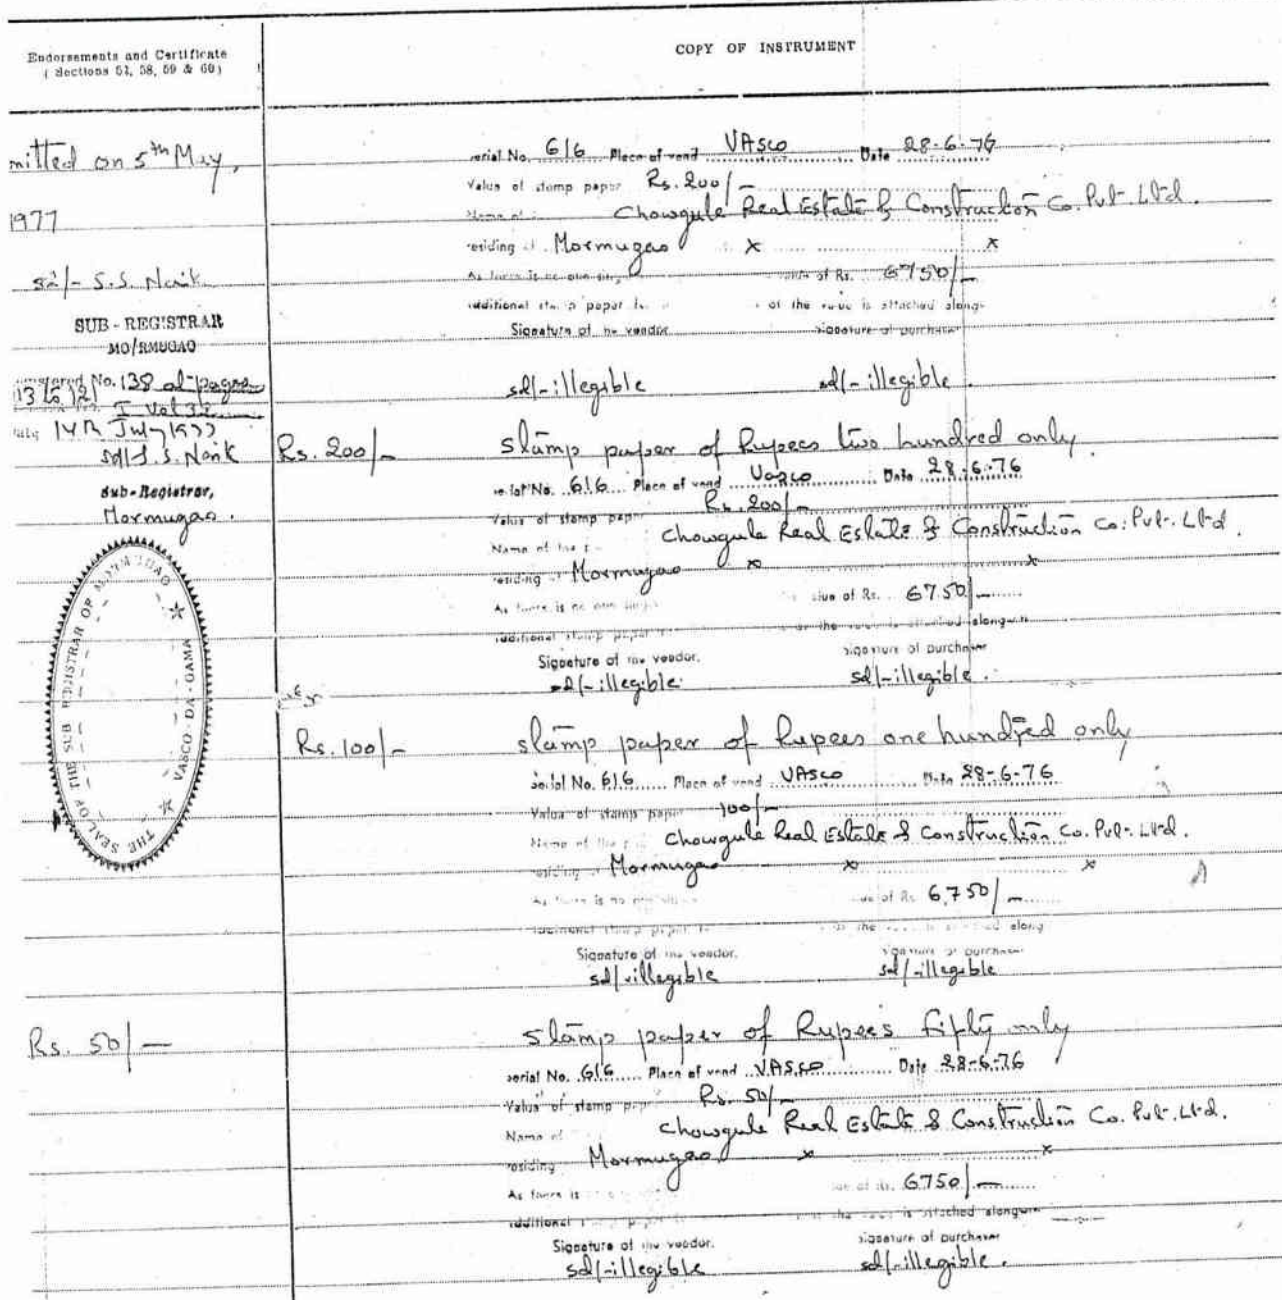 Endorsements and Certificate
( Sections 52, 58, 59 & 60 )
COPY OF INSTRUMENT
mitted on 5th May,
1977
sd/- S.S. Naik
SUB - REGISTRAR
MORMUGAO
No. 138 at pages
13 to 21
I Vol 32
14th July 1977
sd/ S. S. Naik
Sub-Registrar,
Mormugao.
THE SEAL OF THE SUB REGISTRAR OF MORMUGAO
VASCO - DA - GAMA
serial No. 616 Place of vend VASCO Date 28-6-76
Value of stamp paper Rs. 200/-
Name of Chowgule Real Estate & Construction Co. Pvt. Ltd.
residing at Mormugao x x
As there is no one value of Rs. 6750/-
additional stamp paper of the value is attached along-
Signature of the vendor Signature of purchaser
sd/-illegible sd/-illegible.
Rs. 200/- stamp paper of Rupees two hundred only
serial No. 616 Place of vend Vasco Date 28-6-76
Value of stamp paper Rs. 200/-
Name of the Chowgule Real Estate & Construction Co. Pvt. Ltd.
residing Mormugao x x
As there is no one value of Rs. 6750/-
additional stamp paper the value is attached alongwith
Signature of the vendor. signature of purchaser
sd/-illegible sd/-illegible.
Rs. 100/- stamp paper of Rupees one hundred only
Serial No. 616 Place of vend VASCO Date 28-6-76
Value of stamp paper 100/-
Name of the Chowgule Real Estate & Construction Co. Pvt. Ltd.
residing Mormugao x x
As there is no value of Rs. 6,750/-
additional stamp paper the attached along
Signature of the vendor. signature of purchaser
sd/-illegible sd/-illegible
Rs. 50/- Stamp paper of Rupees fifty only
serial No. 616 Place of vend VASCO Date 28-6-76
Value of stamp Rs. 50/-
Name of Chowgule Real Estate & Construction Co. Pvt. Ltd.
residing Mormugao x x
As there is value of Rs. 6750/-
additional the value is attached alongwith
Signature of the vendor. signature of purchaser
sd/-illegible sd/-illegible.